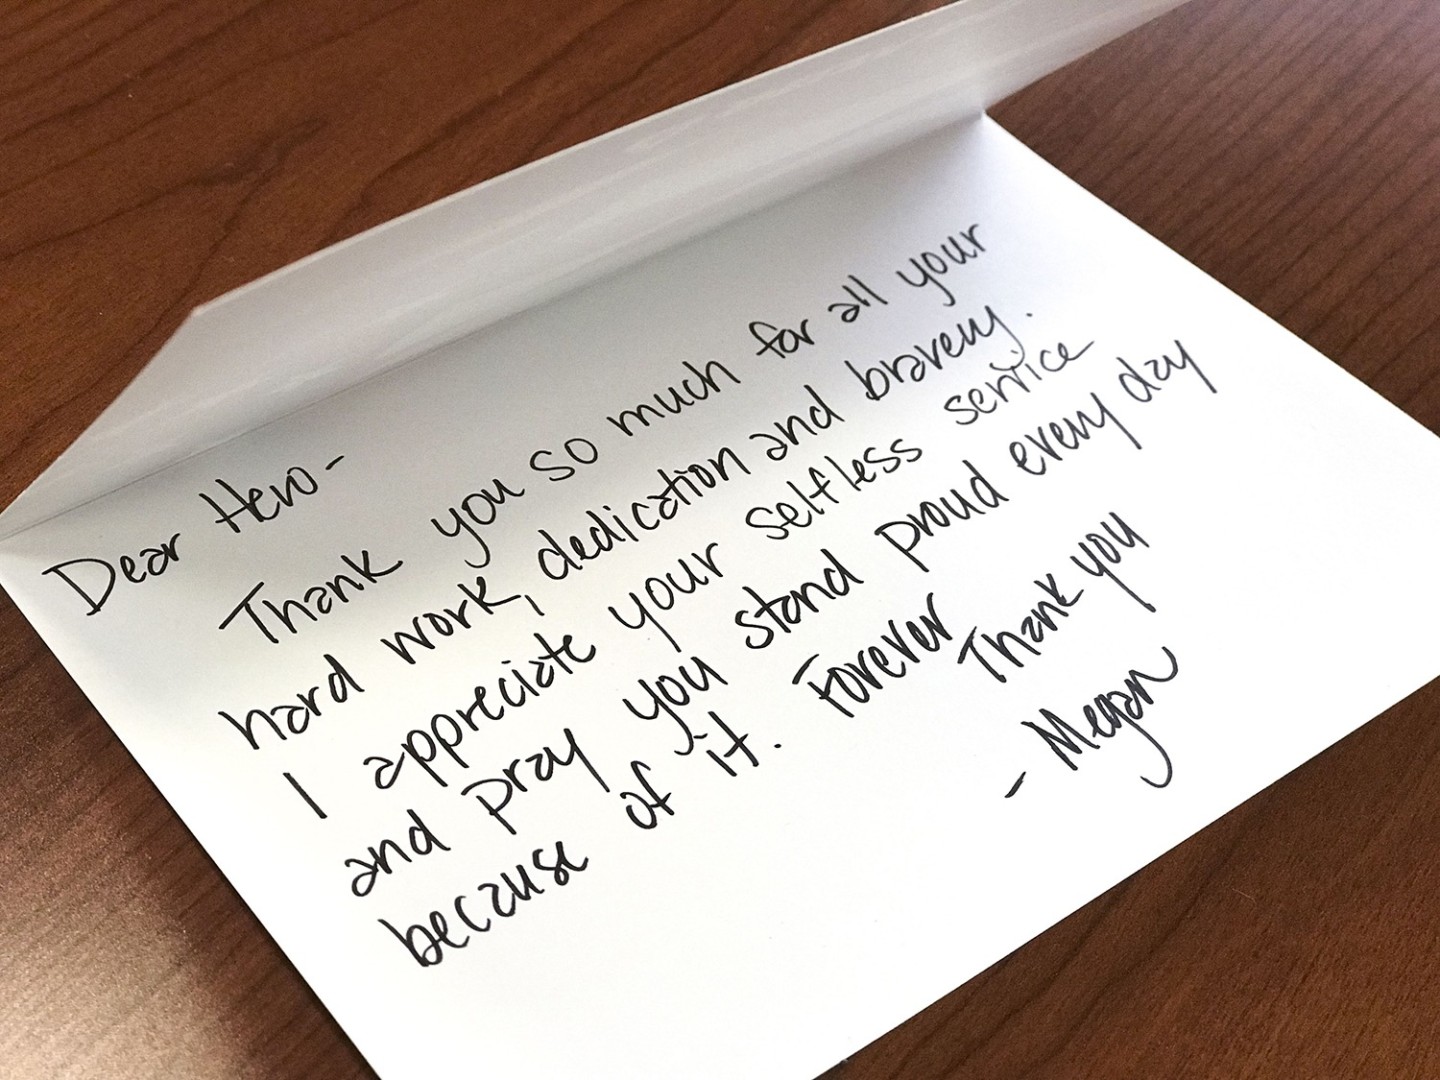 Dear Hero-
Thank you so much for all your
hard work, dedication and bravery.
I appreciate your selfless service
and pray you stand proud every day
because of it. Forever Thank you
- Megan